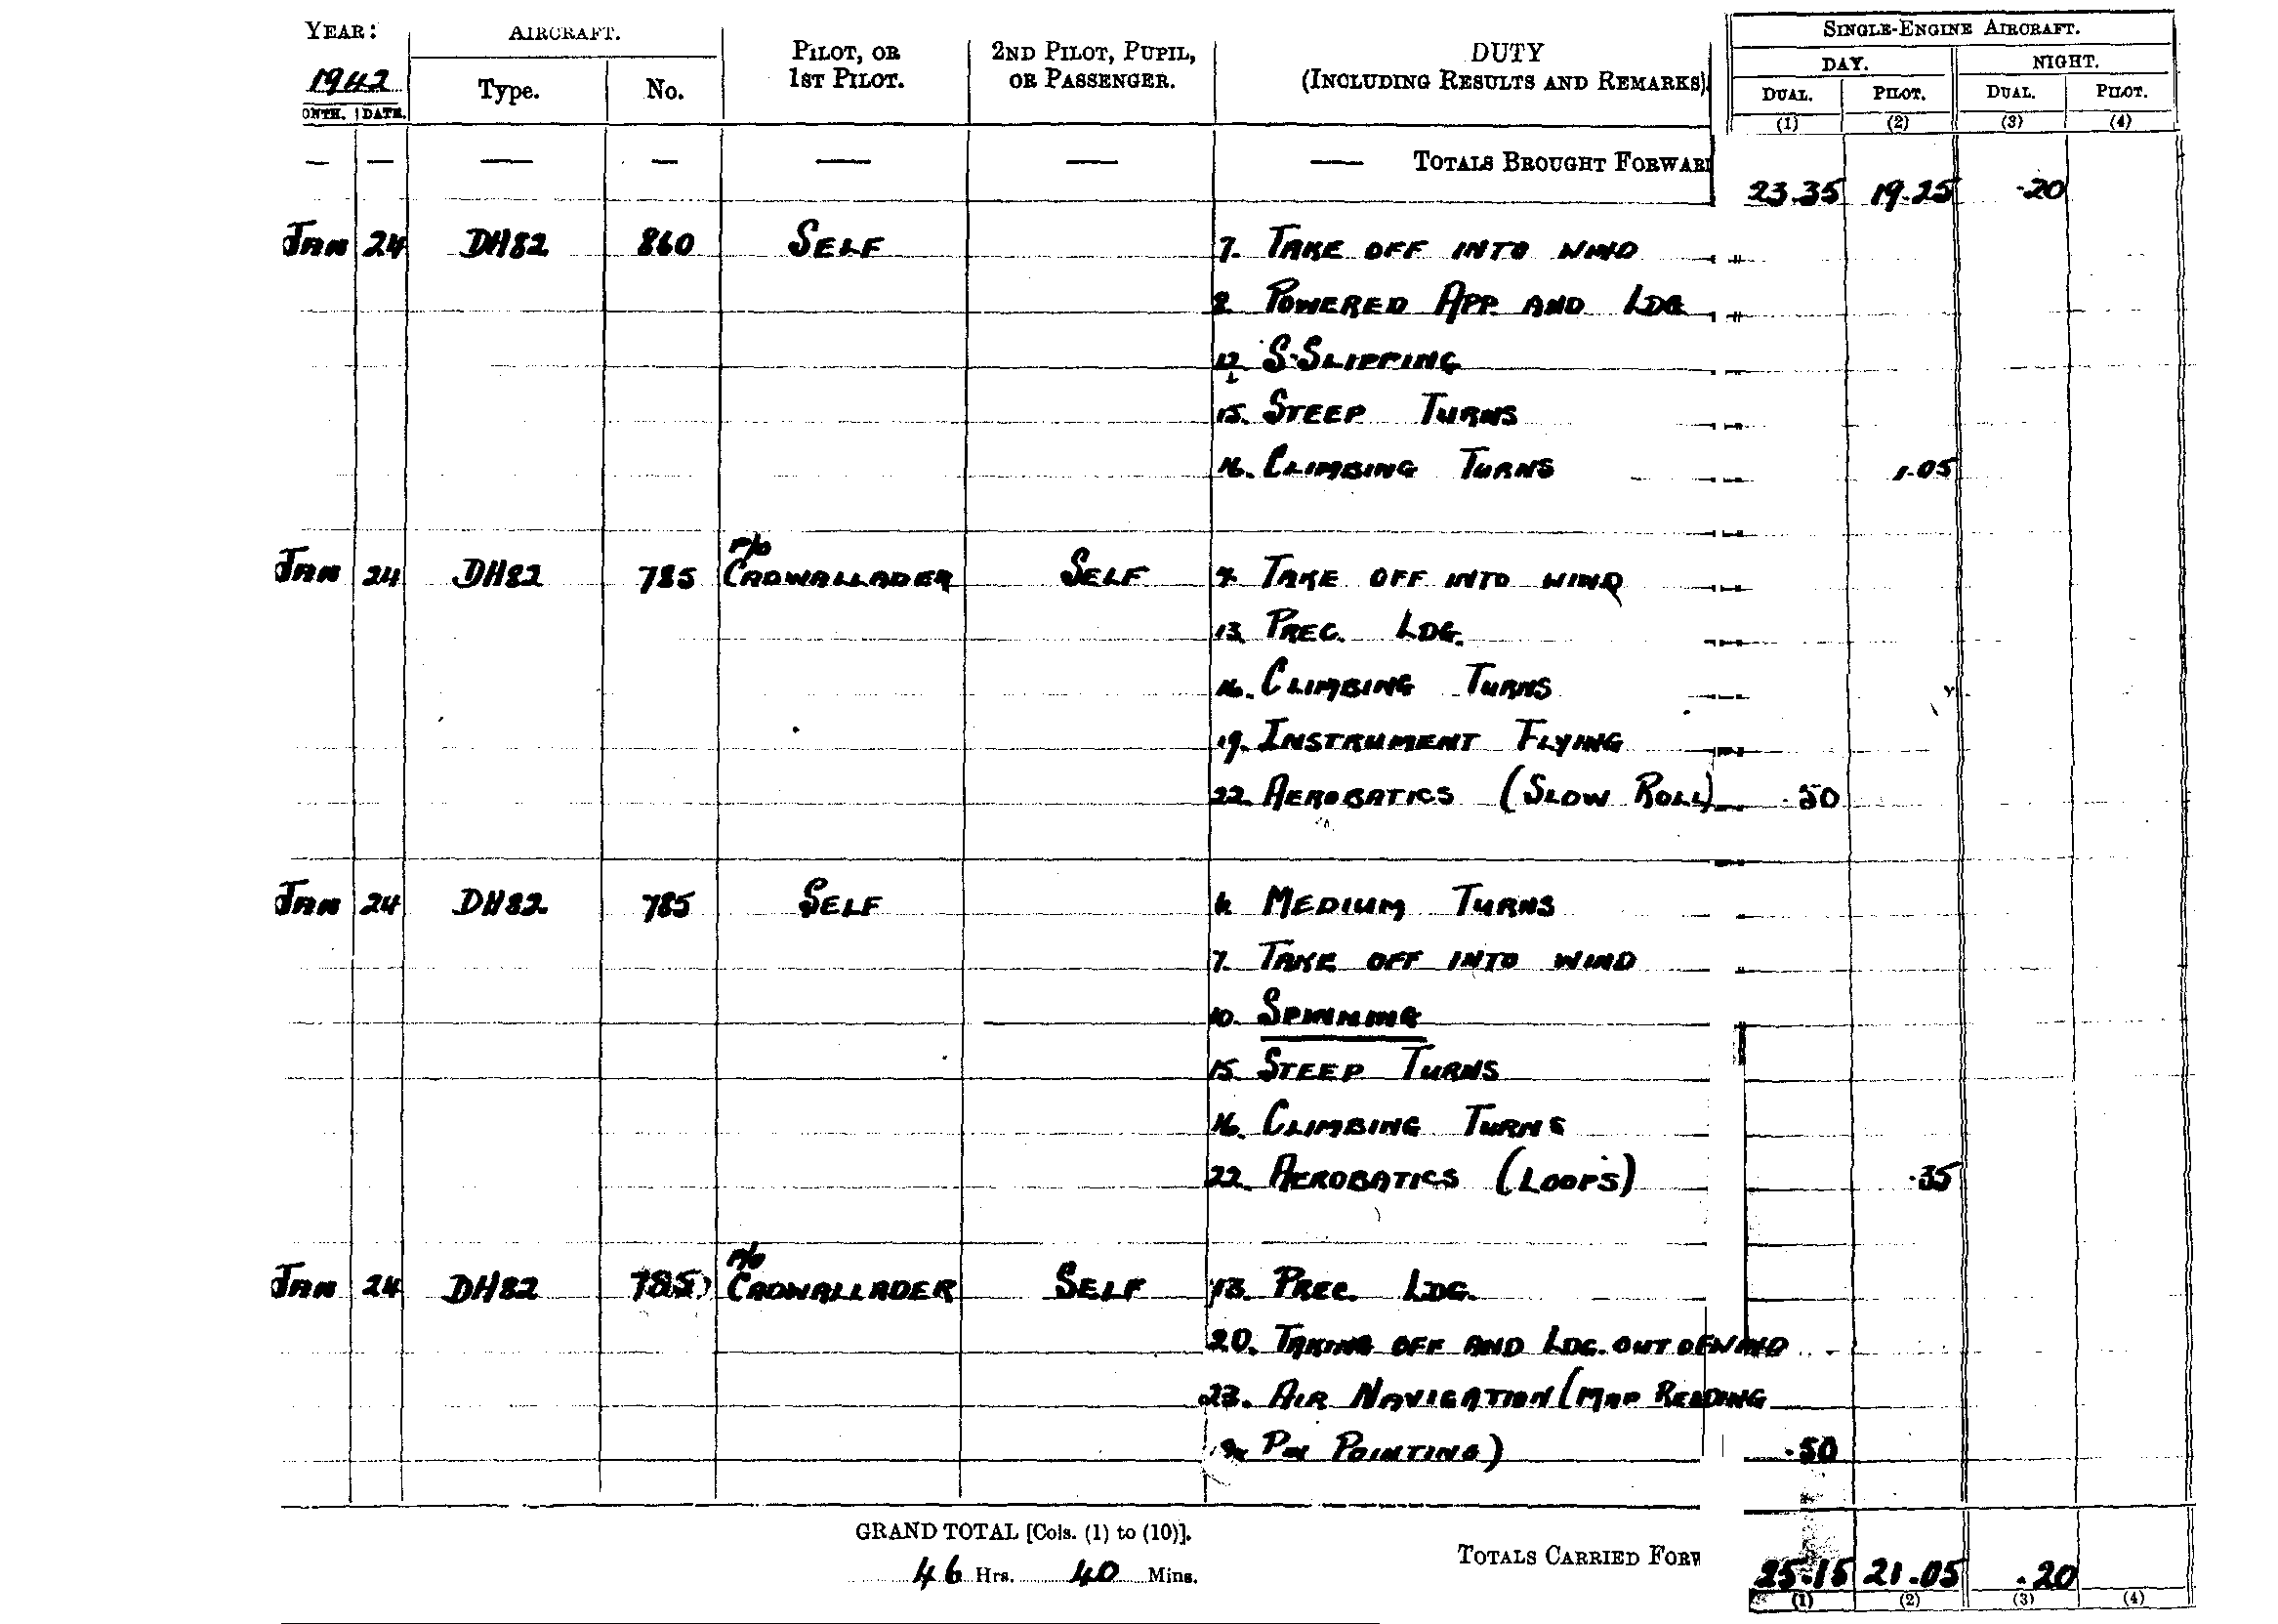 YEAR: AIRCRAFT. PILOT, OR 1ST PILOT. 2ND PILOT, PUPIL, OR PASSENGER. DUTY (INCLUDING RESULTS AND REMARKS) SINGLE-ENGINE AIRCRAFT.
DAY. NIGHT.
1942 Type. No. DUAL. PILOT. DUAL. PILOT.
ONTH. DATE. (1) (2) (3) (4)
— — — — — — — TOTALS BROUGHT FORWARD
23.35 19.25 .20
JAN 24 DH82 860 SELF 7. TAKE OFF INTO WIND
8. POWERED APP. AND LDG
12. S-SLIPPING
15. STEEP TURNS
16. CLIMBING TURNS 1.05
P/O
JAN 24 DH82 785 CADWALLADER SELF 7. TAKE OFF INTO WIND
13. PREC. LDG.
16. CLIMBING TURNS
19. INSTRUMENT FLYING
22. AEROBATICS (SLOW ROLL) .50
JAN 24 DH82 785 SELF 6. MEDIUM TURNS
7. TAKE OFF INTO WIND
10. SPINNING
15. STEEP TURNS
16. CLIMBING TURNS
22. AEROBATICS (LOOPS) .35
P/O
JAN 24 DH82 785 CADWALLADER SELF 13. PREC. LDG.
20. TAKING OFF AND LDG. OUT OF WIND
23. AIR NAVIGATION (MAP READING
PIN POINTING) .50
GRAND TOTAL [Cols. (1) to (10)].
46 Hrs. 40 Mins.
TOTALS CARRIED FORW 25.15 21.05 .20
(1) (2) (3) (4)